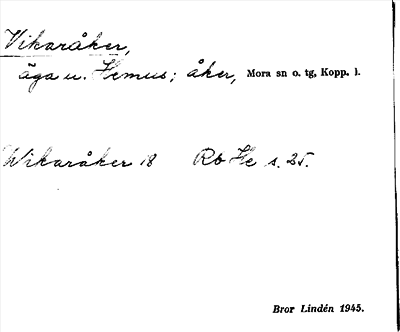 Vikaråker,
äga u. Hemus; åker, Mora sn o. tg, Kopp. l.
Wikaråker 18 Rb He s. 25.
Bror Lindén 1945.